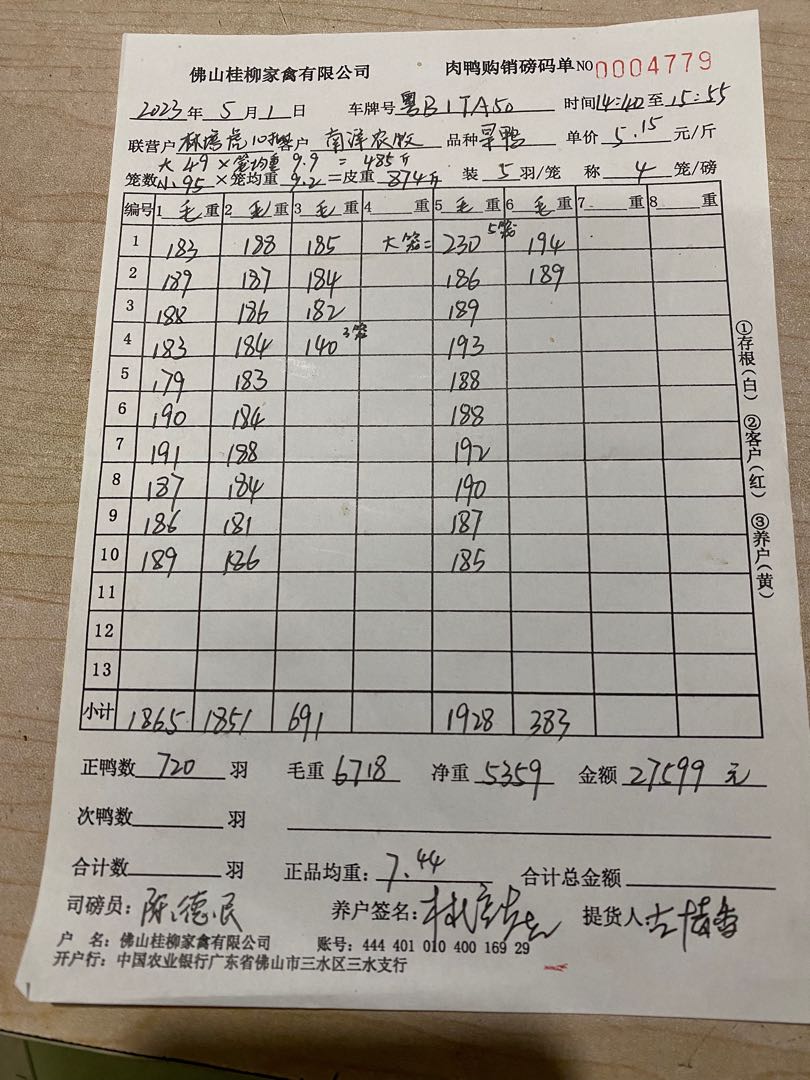 佛山桂柳家禽有限公司 肉鸭购销磅码单NO 0004779
2023年5月1日 车牌号 粤B1TA50 时间14:40至15:55
联营户 林 虎10批 客户 南洋农牧 品种 旱鸭 单价 5.15 元/斤
大49×笼均重9.9=485斤
笼数 小.95×笼均重9.2=皮重874斤 装5羽/笼 称4笼/磅
编号 1毛重 2毛重 3毛重 4重 5毛重 6毛重 7重 8重
1 183 188 185 大笼= 230 5笼 194
2 189 187 184 186 189
3 188 186 182 189
4 183 184 140 3笼 193
5 179 183 188
6 190 184 188
7 191 188 192
8 187 184 190
9 186 181 187
10 189 186 185
11
12
13
小计 1865 1851 691 1928 383
正鸭数 720 羽 毛重 6718 净重 5359 金额 27599 元
次鸭数 羽
合计数 羽 正品均重: 7.44 合计总金额
司磅员: 陈德民 养户签名: 提货人
户 名: 佛山桂柳家禽有限公司 账号: 444 401 010 400 169 29
开户行: 中国农业银行广东省佛山市三水区三水支行
①存根(白) ②客户(红) ③养户(黄)